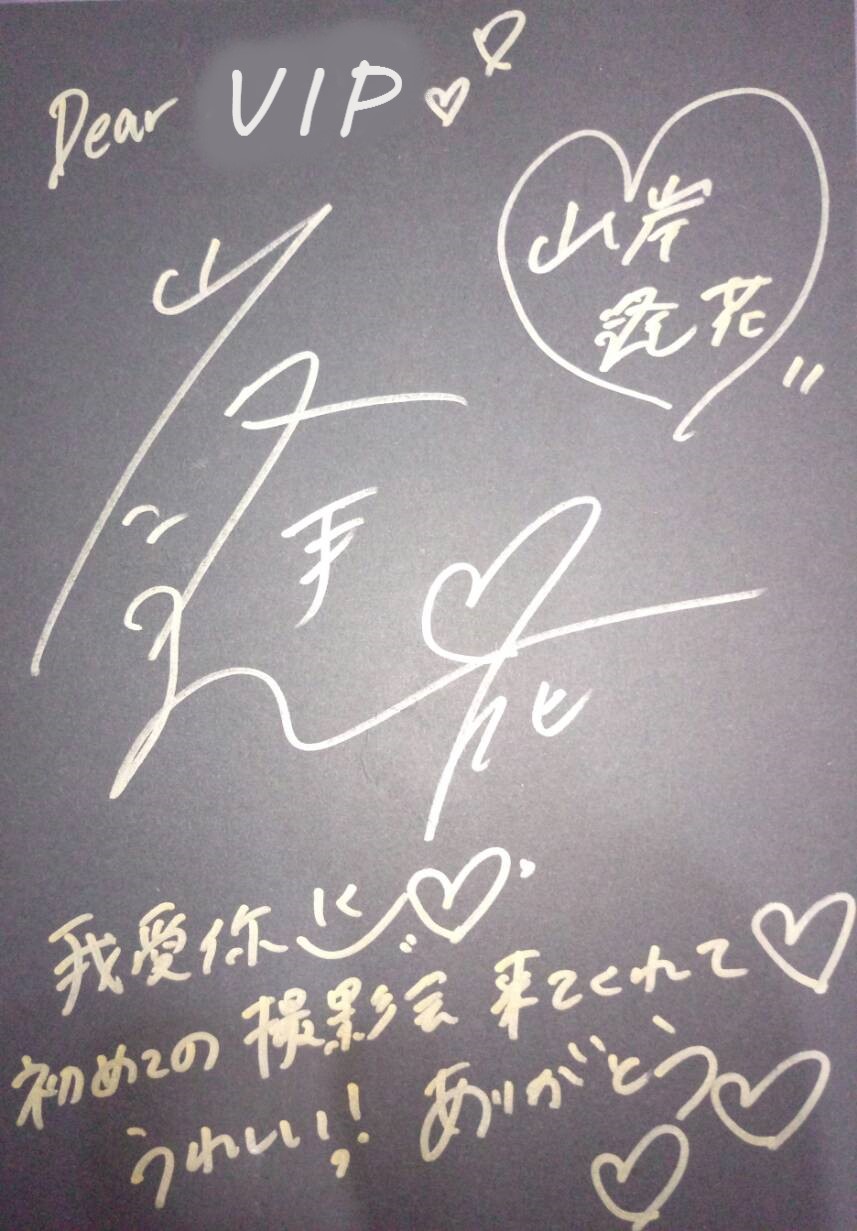 Dear VIP
山岸
逢花
我愛你
初めての撮影会 来てくれて
うれしい! ありがとう